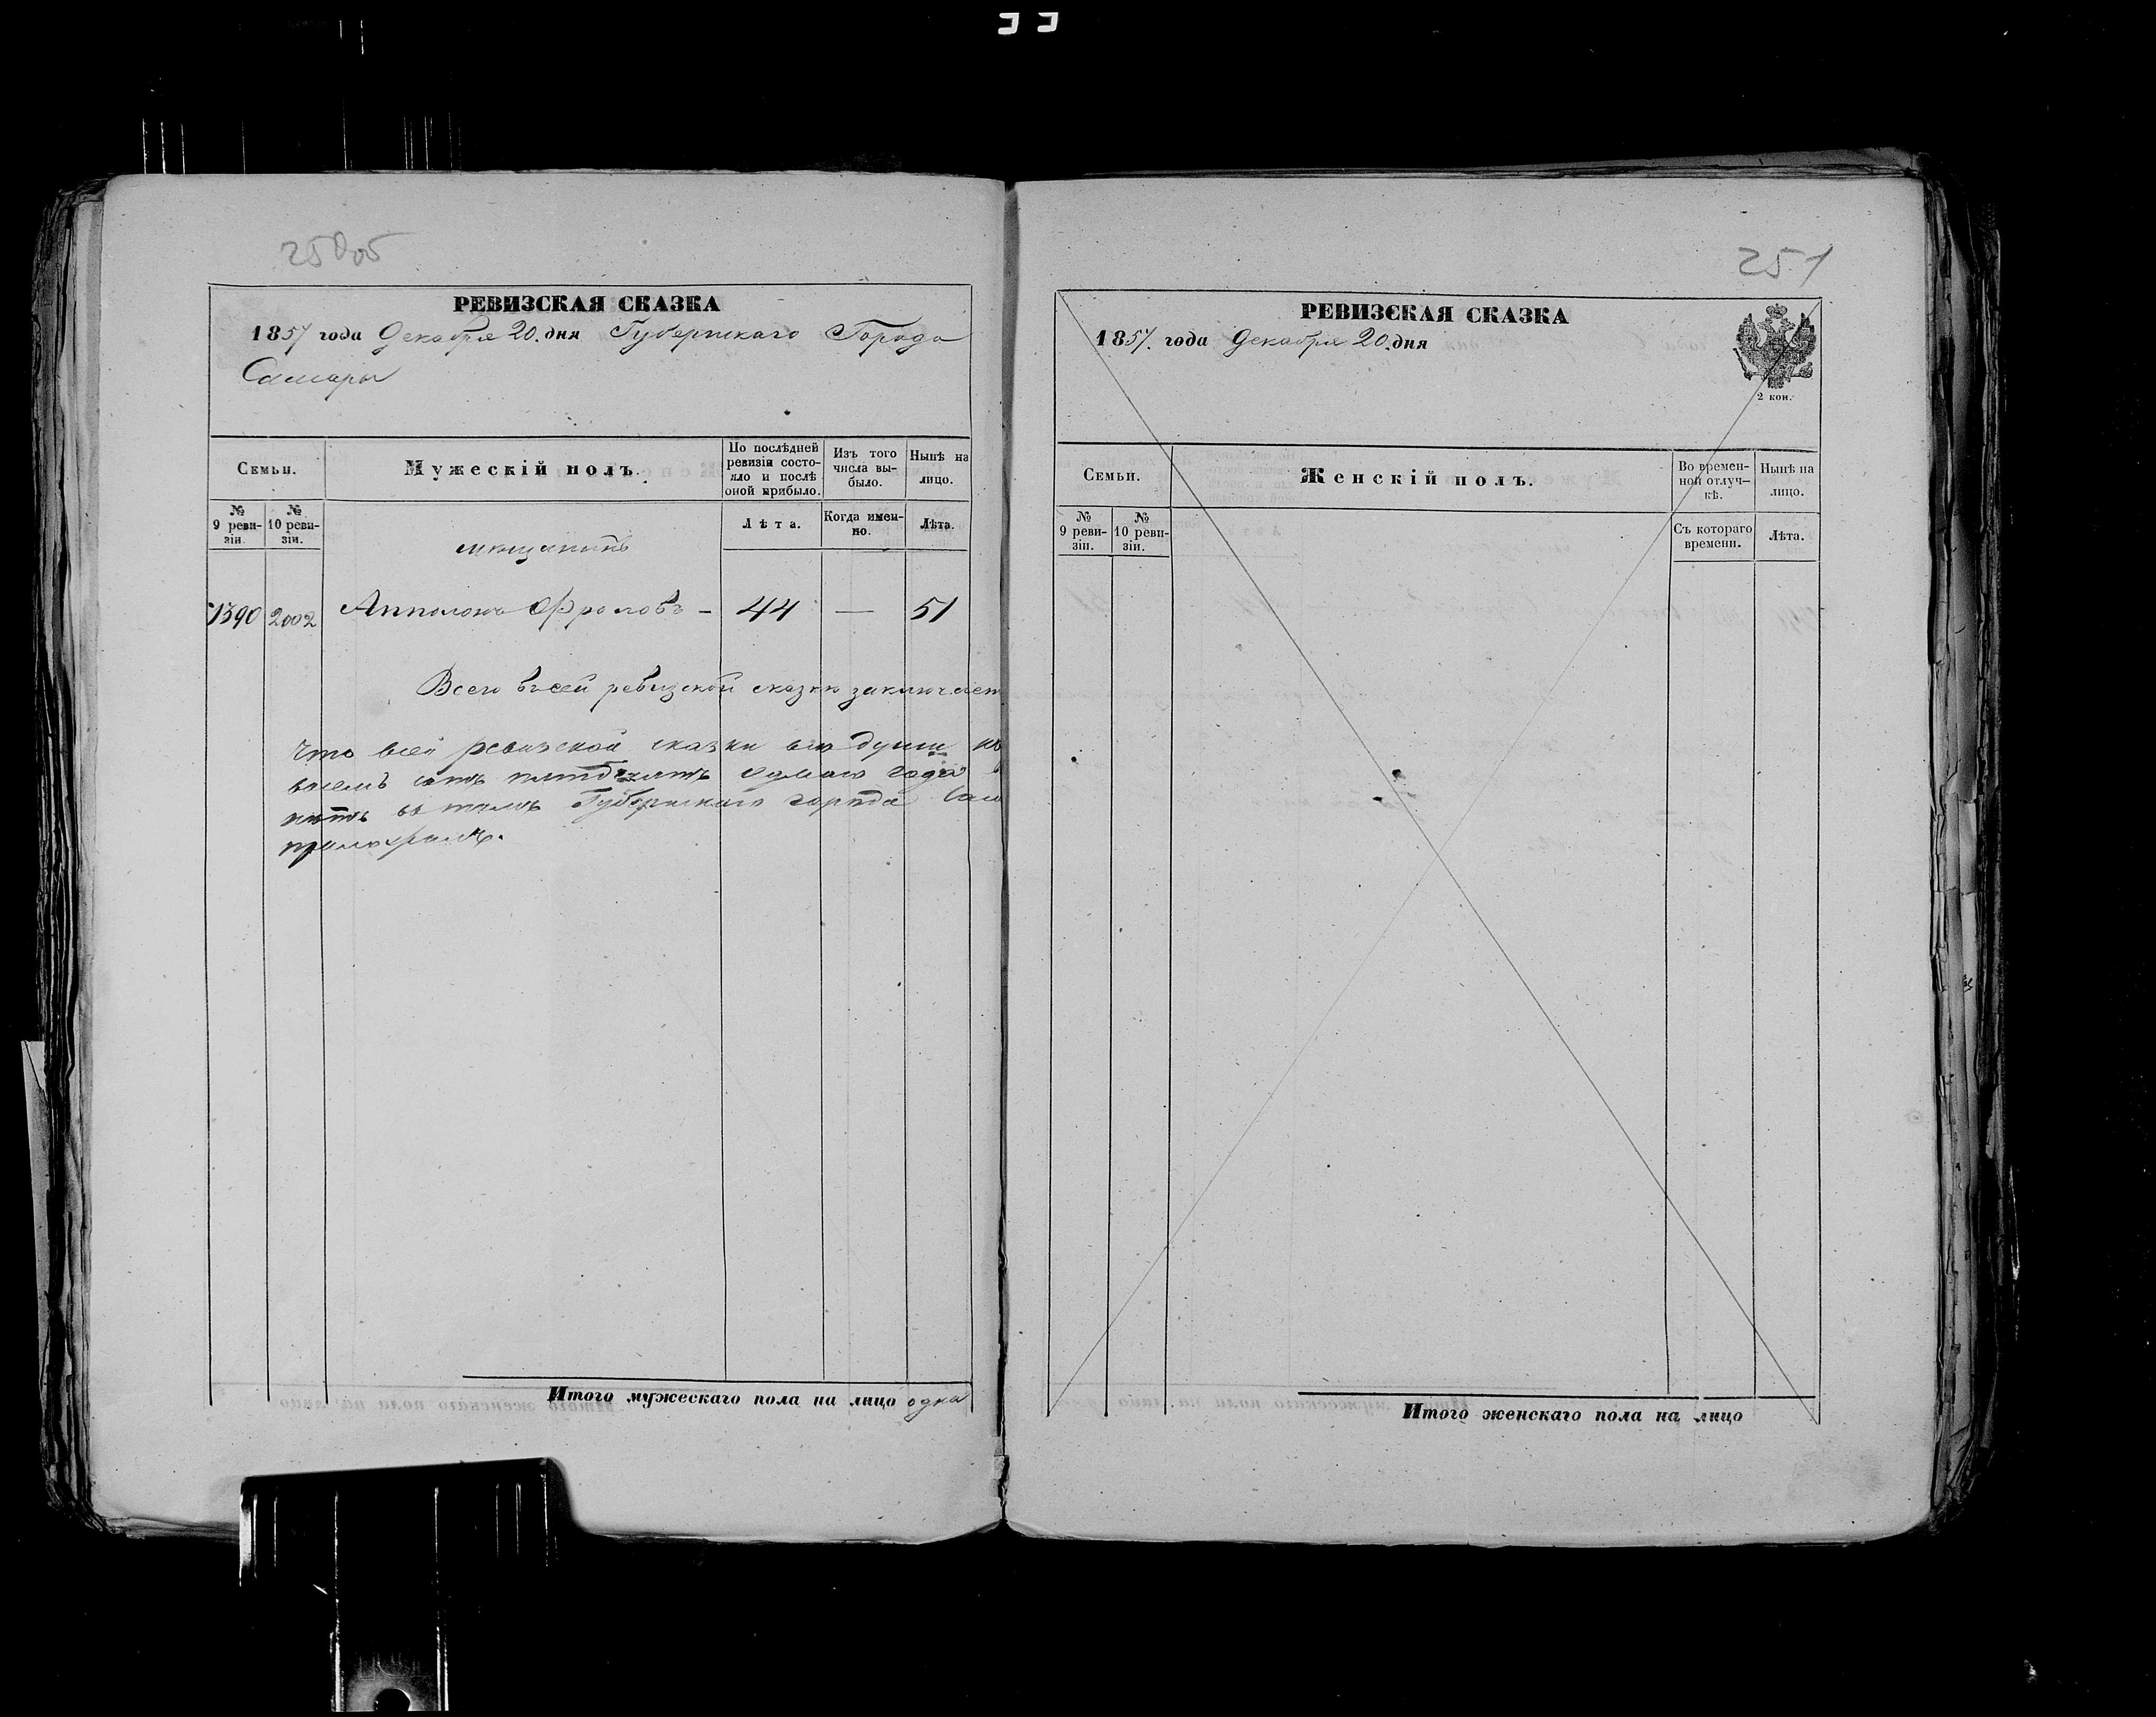 250об
РЕВИЗСКАЯ СКАЗКА
1857 года Декабря 20. дня Губернскаго Города
Самары
Семьи.
Мужескій полъ.
По послѣдней ревизіи состояло и послѣ оной прибыло.
Изъ того числа выбыло.
Нынѣ на лицо.
№ 9 ревизіи.
№ 10 ревизіи.
Лѣта.
Когда именно.
Лѣта.
мещанинъ
1390 2002 Апполонъ Фроловъ - 44 — 51
Всего в сей ревизской сказке заключает
Что всей ревизской сказки
восемь сотъ пятдесятъ седьмаго года
Губернскаго города Сам
Итого мужескаго пола на лицо одна
251
РЕВИЗСКАЯ СКАЗКА
1857. года Декабря 20. дня
2 коп.
Семьи.
Женскій полъ.
Во временной отлучкѣ.
Нынѣ на лицо.
№ 9 ревизіи.
№ 10 ревизіи.
Съ котораго времени.
Лѣта.
Итого женскаго пола на лицо